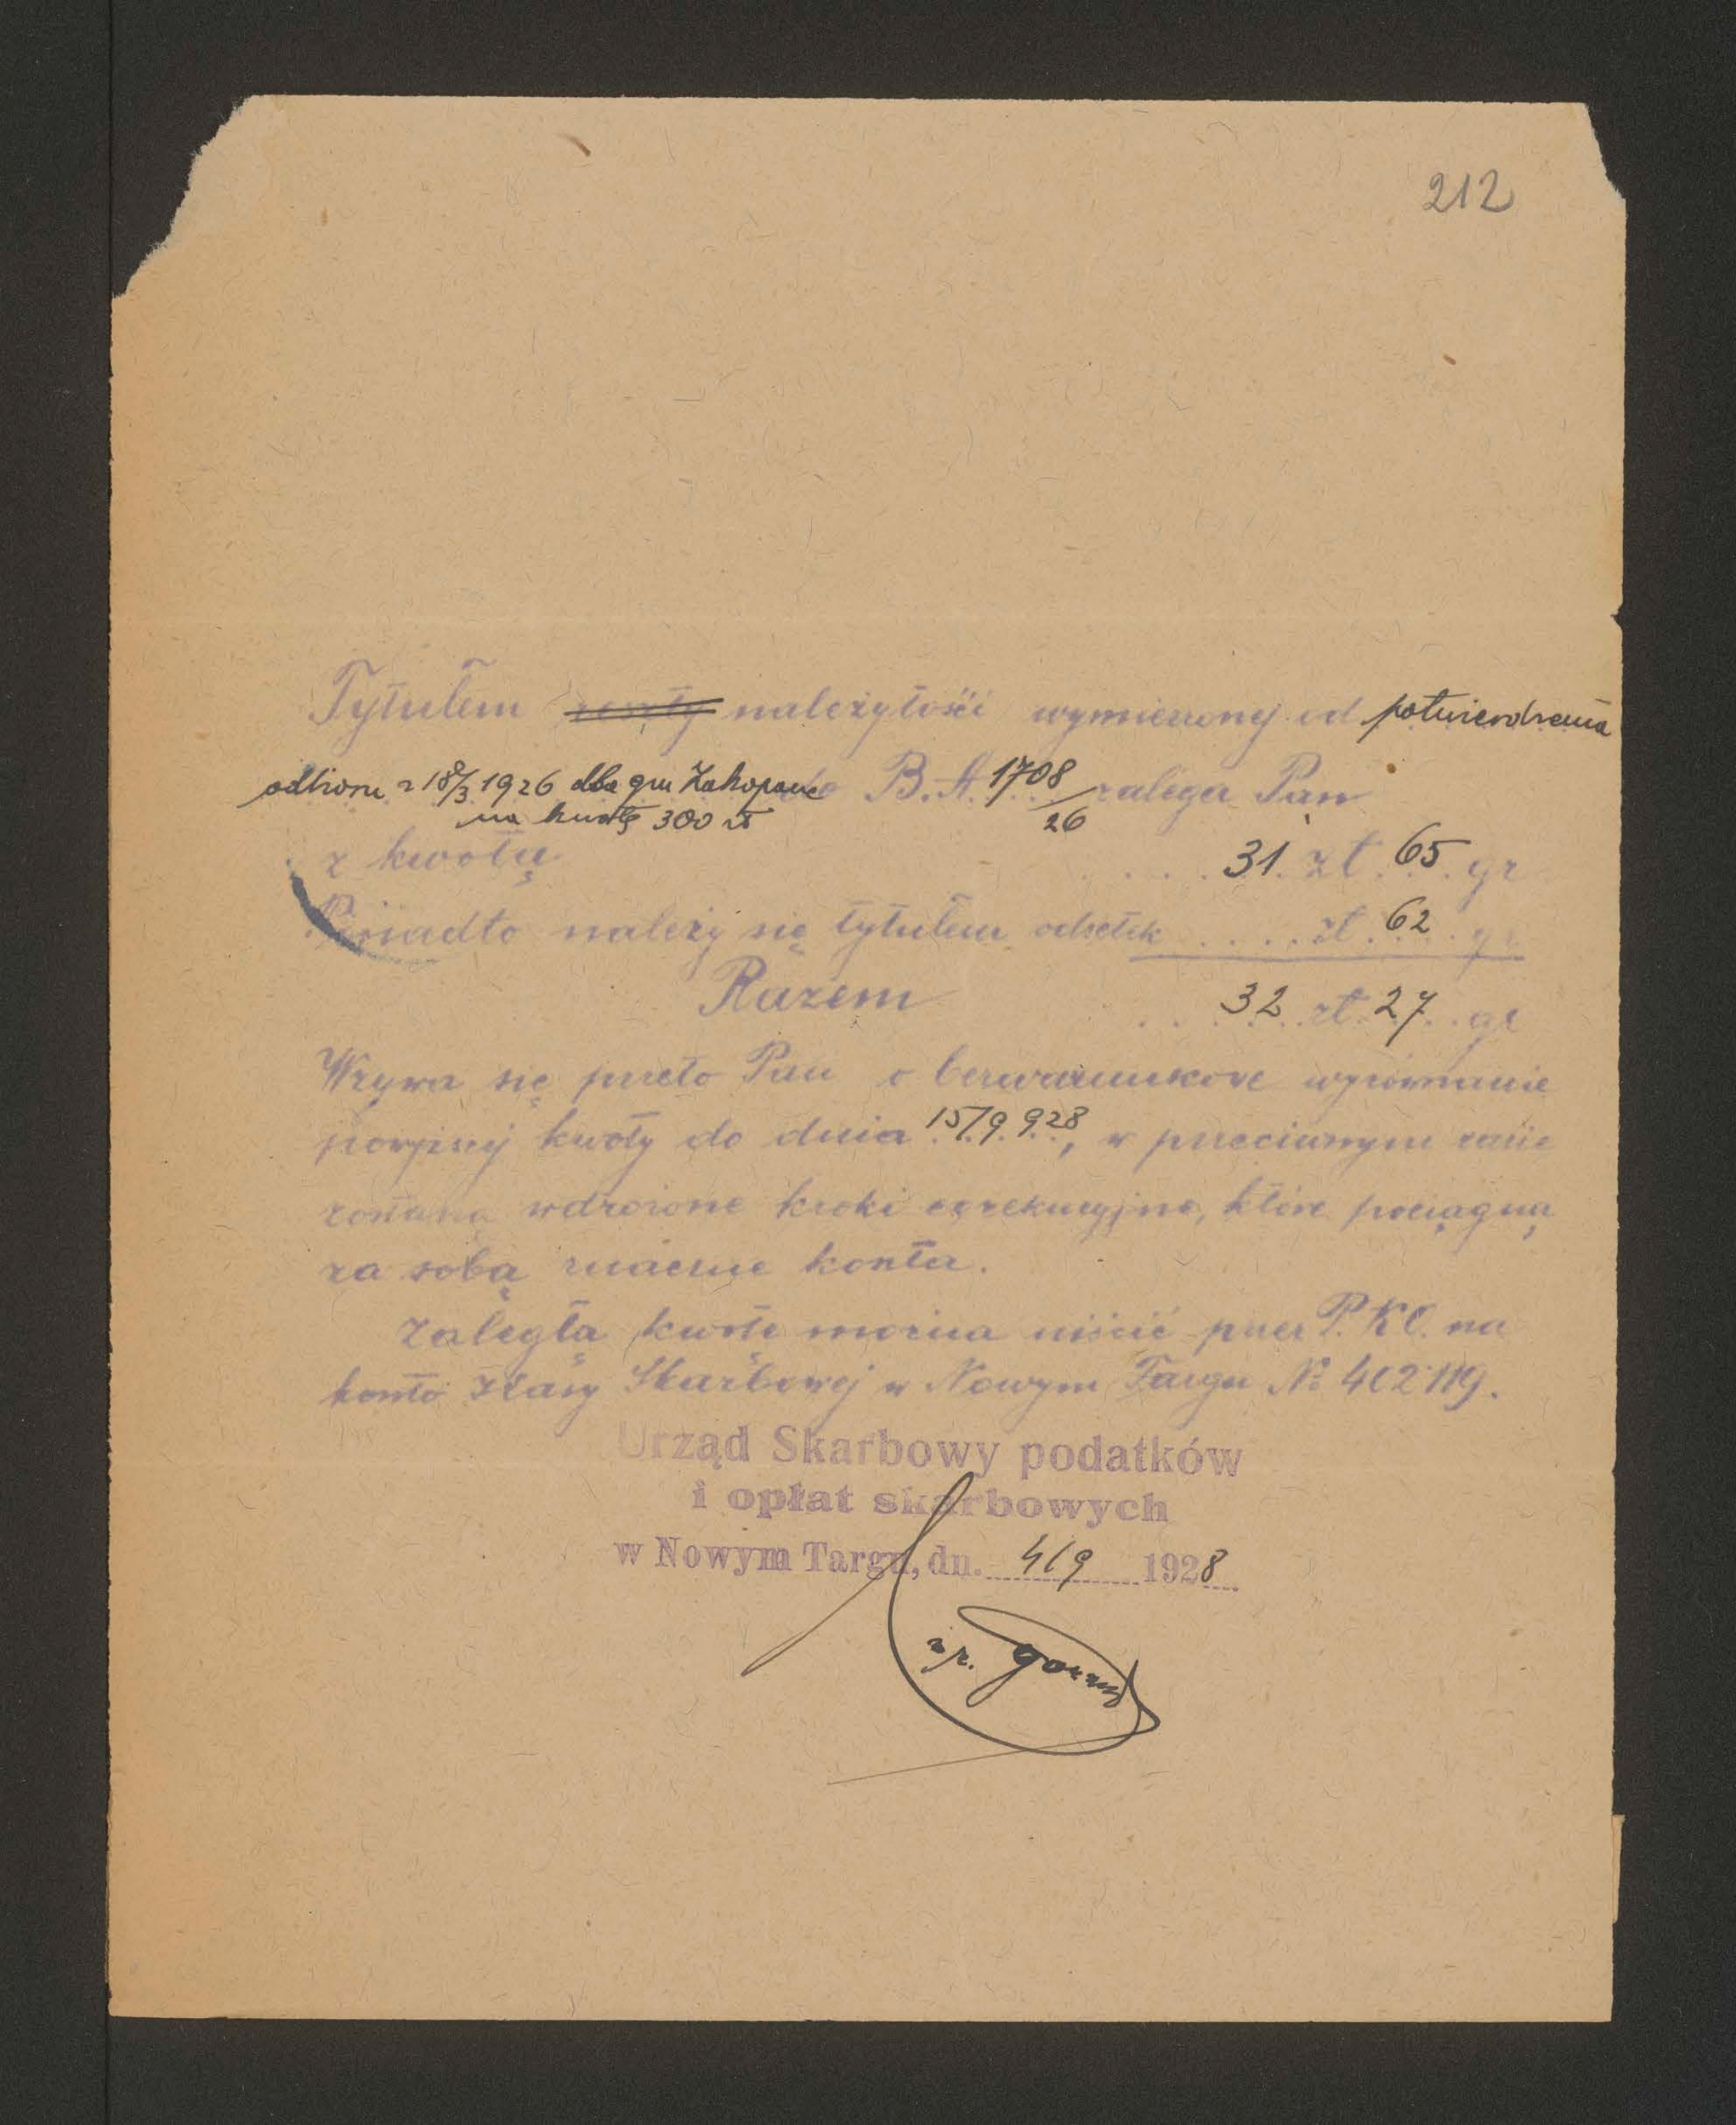 212
Tytułem reszty należytości wymierzonej od potwierdzenia
odbioru z 18/3 1926 dla gm Zakopane do B.A. 1708/26 zalega Pan
na kwotę 300 zł
z kwotą . . . . 31 zł 65 gr
Ponadto należy się tytułem odsetek . . . . zł 62 gr
Razem . . . . 32 zł 27 gr
Wzywa się przeto Pan o bezwarunkowe wyrównanie
powyżej kwoty do dnia 15/9 928, w przeciwnym razie
zostaną wdrożone kroki egzekucyjne, które pociągną
za sobą znaczne koszta.
Zaległą kwotę można uiścić przez P.K.O. na
konto Kasy Skarbowej w Nowym Targu № 402119.
Urząd Skarbowy podatków
i opłat skarbowych
w Nowym Targu, dn. 4/9 1928